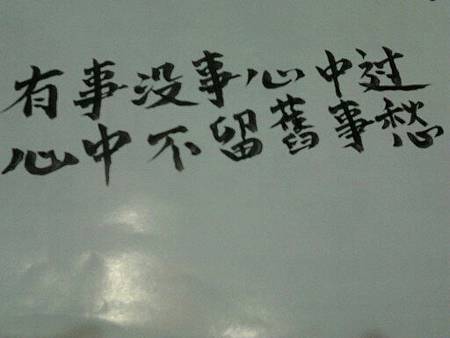 有事没事心中过
心中不留舊事愁